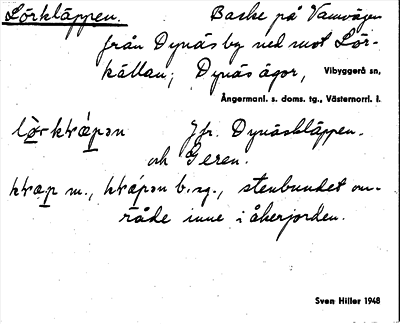 Lörkläppen. Backe på Vannvägen
från Dynäs by ned mot Lör-
källan; Dynäs ägor, Vibyggerå sn,
Ångermanl. s. doms. tg., Västernorrl. l.
Jfr. Dynäskläppen.
och Geren.
m., b. sg., stenbundet om-
råde inne i åkerjorden.
Sven Hiller 1948